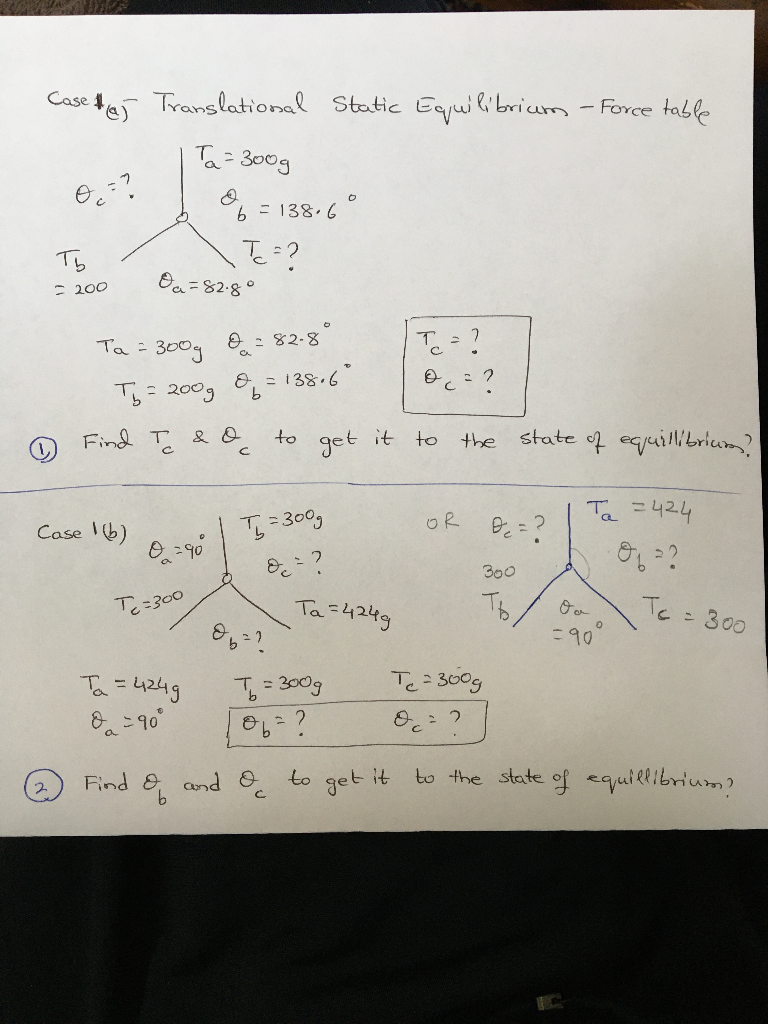 Case 1(a)- Translational Static Equilibrium - Force table
Ta = 300g
θc = ?
θb = 138.6°
Tb = 200
Tc = ?
θa = 82.8°
Ta = 300g θa = 82.8°
Tb = 200g θb = 138.6°
Tc = ?
θc = ?
1) Find Tc & θc to get it to the state of equillibrium?
Case 1(b)
θa = 90°
Tb = 300g
θc = ?
Tc = 300
Ta = 424g
θb = ?
OR
θc = ?
Ta = 424
θb = ?
300
Tb
θa = 90°
Tc = 300
Ta = 424g Tb = 300g Tc = 300g
θa = 90° θb = ? θc = ?
2 Find θb and θc to get it to the state of equillibrium?